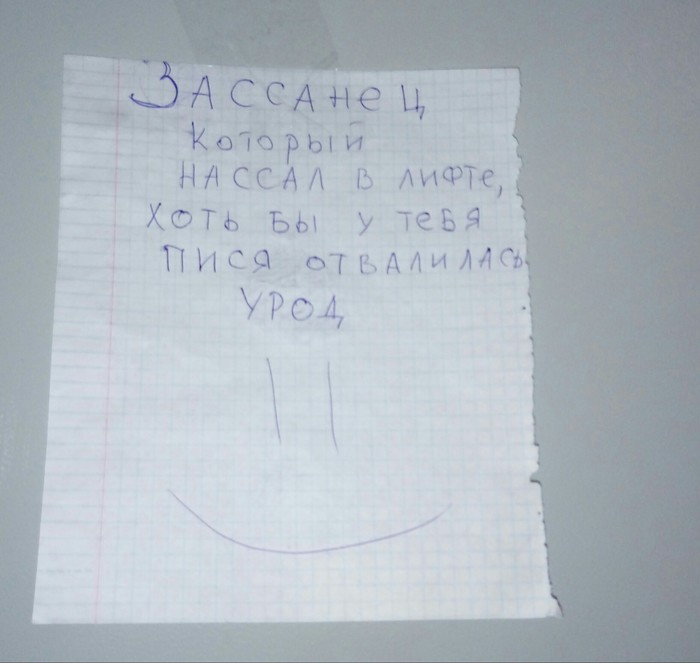 ЗАССАНЕЦ
КОТОРЫЙ
НАССАЛ В ЛИФТЕ,
ХОТЬ БЫ У ТЕБЯ
ПИСЯ ОТВАЛИЛАСЬ
УРОД